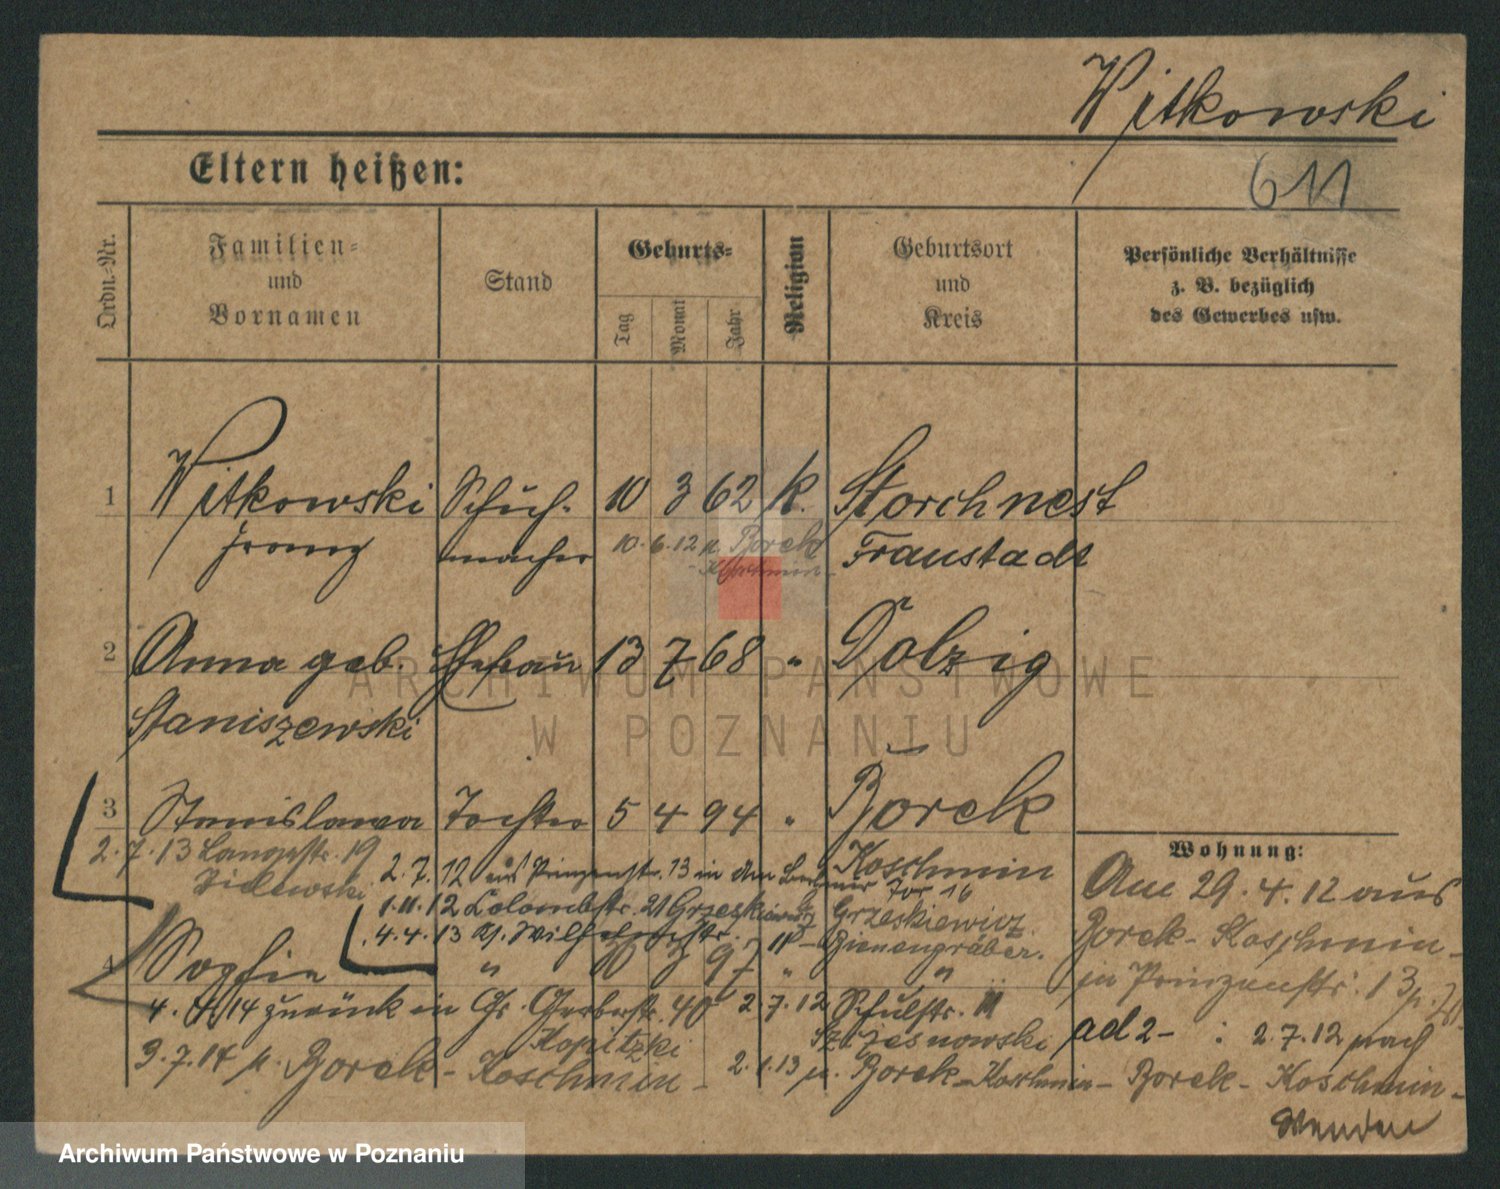 Witkowski
611
Eltern heißen:
Ordn.-Nr.
Familien-
und
Vornamen
Stand
Geburts-
Tag
Monat
Jahr
Religion
Geburtsort
und
Kreis
Persönliche Verhältnisse
z. B. bezüglich
des Gewerbes usw.
1 Witkowski Schuh- 10 3 62 k. Storchnest
Franz macher Fraustadt
10. 6. 12 n. Borek
Koschmin-
2 Anna geb. Ehefrau 13 7 68 " Dolzig
Staniszewski
3 Stanislawa Tochter 5 4 94 " Borek
Koschmin
2. 7. 13 Langestr. 19
2. 7. 12 aus Prinzenstr. 13 in dem Berliner Tor 16
1. 11. 12 Colombstr. 21 Grzeskiewicz
Grzeskiewicz.
4. 4. 13 Wilhelmstr. 11 Bienengräber.
4 Sophie " 97 " "
4. 4. 14 zurück in Gr. Gerberstr. 40
Kopitzki
2. 7. 12 Schulstr. 11
jesnowski
3. 7. 14 n. Borek - Koschmin -
2. 1. 13 n. Borek - Koschmin -
Wohnung:
Am 29. 4. 12 aus
Borek - Koschmin -
in Prinzenstr. 13
ad 2 - : 2. 7. 12 nach
Borek - Koschmin -
Wenden
ARCHIWUM PAŃSTWOWE
W POZNANIU
Archiwum Państwowe w Poznaniu